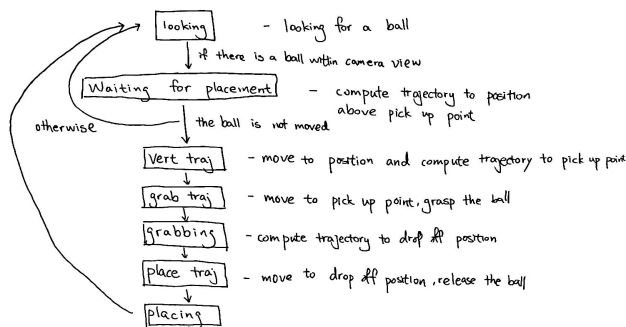 looking - looking for a ball
if there is a ball within camera view
Waiting for placement - compute trajectory to position
above pick up point
otherwise
the ball is not moved
vert traj - move to position and compute trajectory to pick up point
grab traj - move to pick up point, grasp the ball
grabbing - compute trajectory to drop off position
place traj - move to drop off position, release the ball
placing